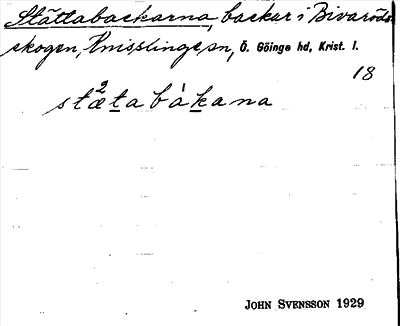 Stättabackarna, backar i Bivaröds-
skogen, Knisslinge sn, Ö. Göinge hd, Krist. l.
18
stætabákana
JOHN SVENSSON 1929